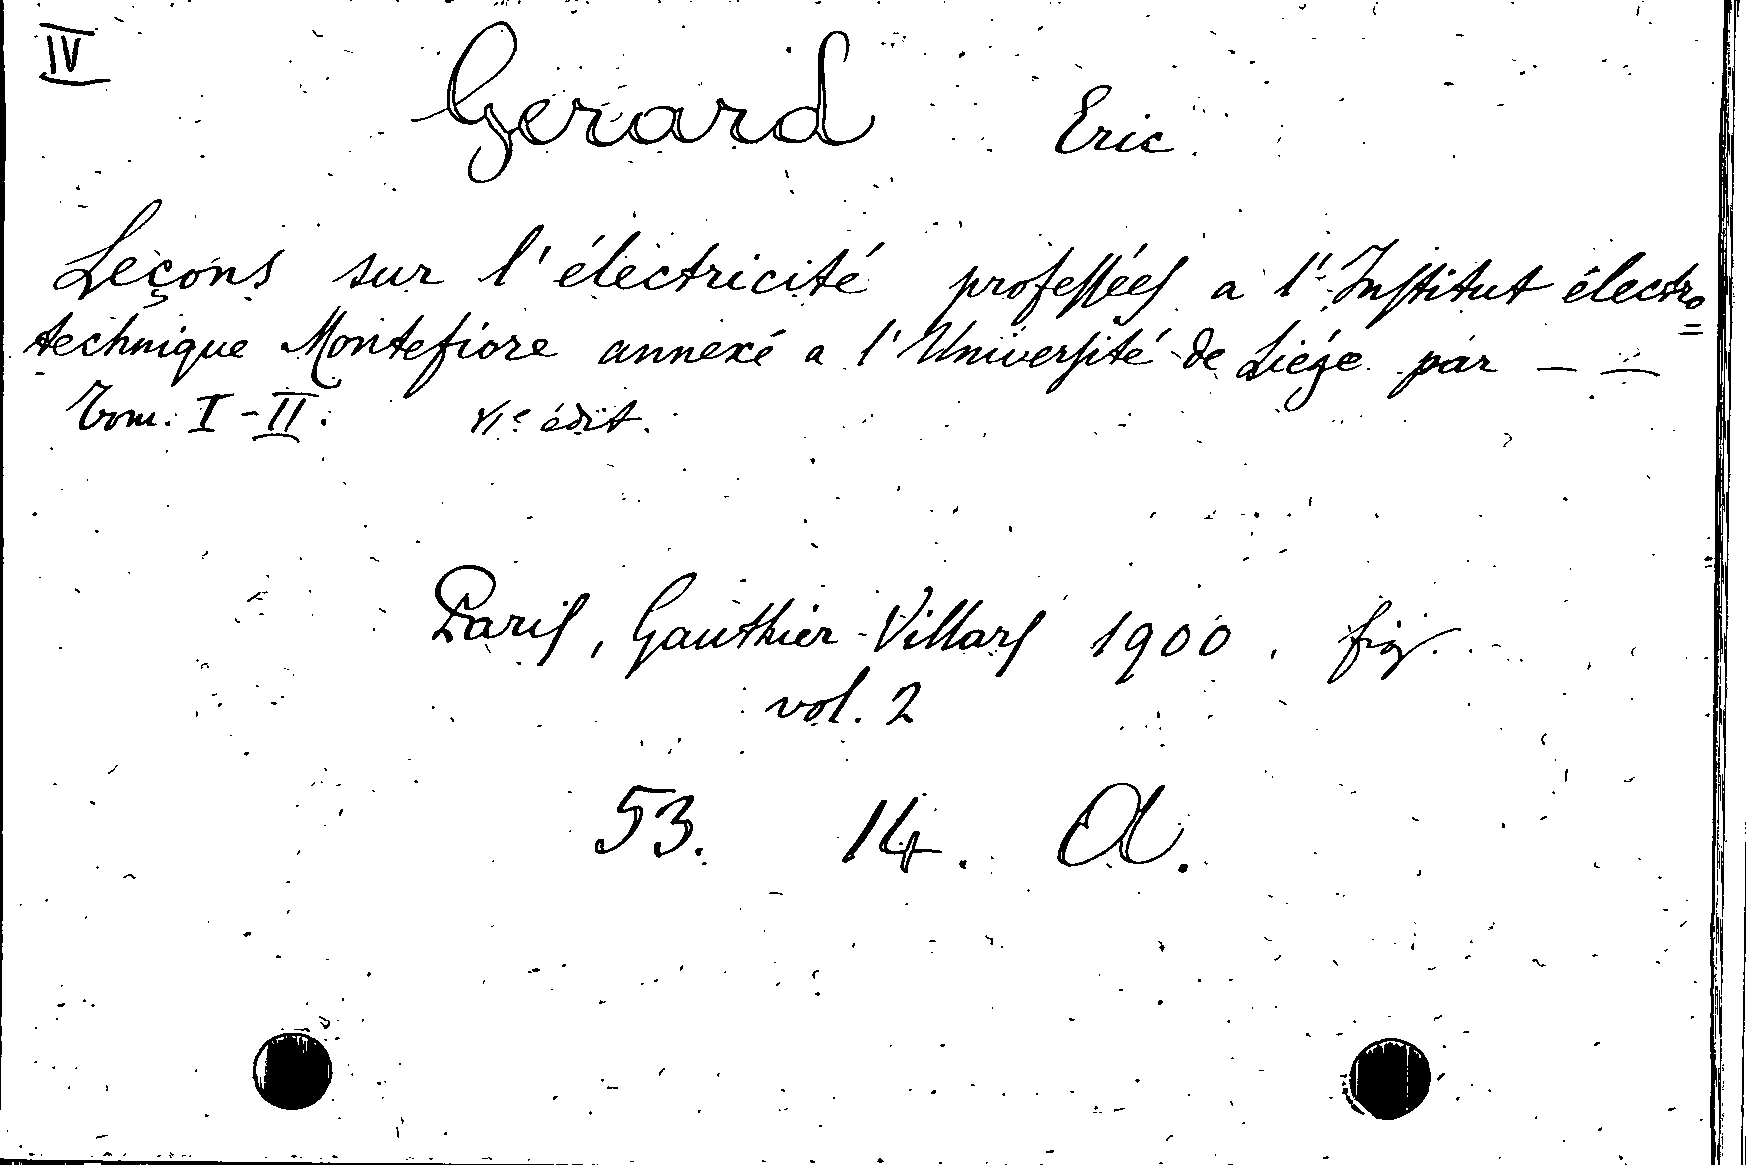 IV
Gerard Eric
Leçons sur l'électricité professées a l'Institut électro=
technique Montefiore annexé a l'Université de Liége par — —
Tom. I-II. VIe édit.
Paris, Gauthier-Villars 1900. fig.
vol. 2
53. 14. A.